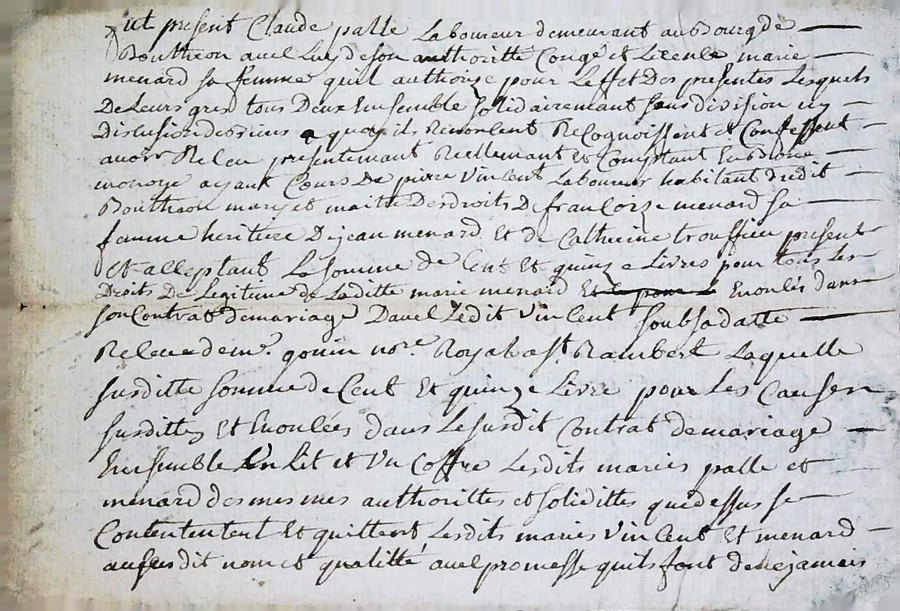 fut present Claude palle Laboureur demeurant au Bourg de
Boutheon avel Luy de son authoritté Congé et Licence marie
menard sa femme quil authorize pour Leffet Des presentes Lesquels
De Leurs gres tous Deux Ensemble solidairemant sans division ny
Discusion de biens a quoy ils Renoncent Recognoissent et Confessent
avoir Releu presentemant Reellemant et Comptant En bonne
monoye ayant Cours De pierre Vincent Laboureur habitant dudit
Boutheon mary et maitre Des droits De francoize menard sa
femme heritiere De jean menard Et de Catherine trouffier present
Et alleptant La somme de Cent Et quinze Livres pour tous les
Droits De Legitime de Laditte marie menard Enonlés dans
son Contrat de mariage Davel Ledit Vincent soubs sa datte
Releu de me. gonin nore. Royal a st Rambert Laquelle
susditte somme de Cent Et quinze Livre pour Les Causes
susdittes Et Enonlées dans Le susdit Contrat de mariage
Ensemble Un Lit et Un Coffre Lesdits maries palle et
menard des mesmes authorittes et solidittes que dessus se
Contentent Et quittent Lesdits maries Vincent Et menard
aususdit nom et qualitté avel promesse quils font de ne jamais